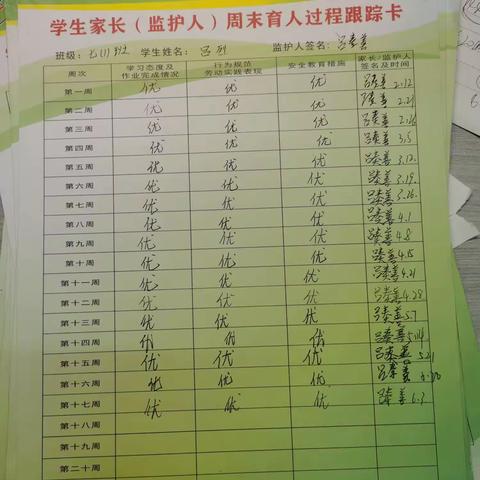 学生家长（监护人）周末育人过程跟踪卡
班级：七(1)班 学生姓名：吕 监护人签名：吕秦善
周次 学习态度及作业完成情况 行为规范劳动实践表现 安全教育措施 家长/监护人签名及时间
第一周 优 优 优 吕秦善 2.12
第二周 优 优 优 吕秦善 2.21
第三周 优 优 优 吕秦善 2.26
第四周 优 优 优 吕秦善 3.5
第五周 优 优 优 吕秦善 3.12
第六周 优 优 优 吕秦善 3.19
第七周 优 优 优 吕秦善 3.26
第八周 优 优 优 吕秦善 4.1
第九周 优 优 优 吕秦善 4.8
第十周 优 优 优 吕秦善 4.15
第十一周 优 优 优 吕秦善 4.21
第十二周 优 优 优 吕秦善 4.28
第十三周 优 优 优 吕秦善 5.7
第十四周 优 优 优 吕秦善 5.14
第十五周 优 优 优 吕秦善 5.21
第十六周 优 优 优 吕秦善
第十七周 优 优 优 吕秦善 6.3
第十八周
第十九周
第二十周